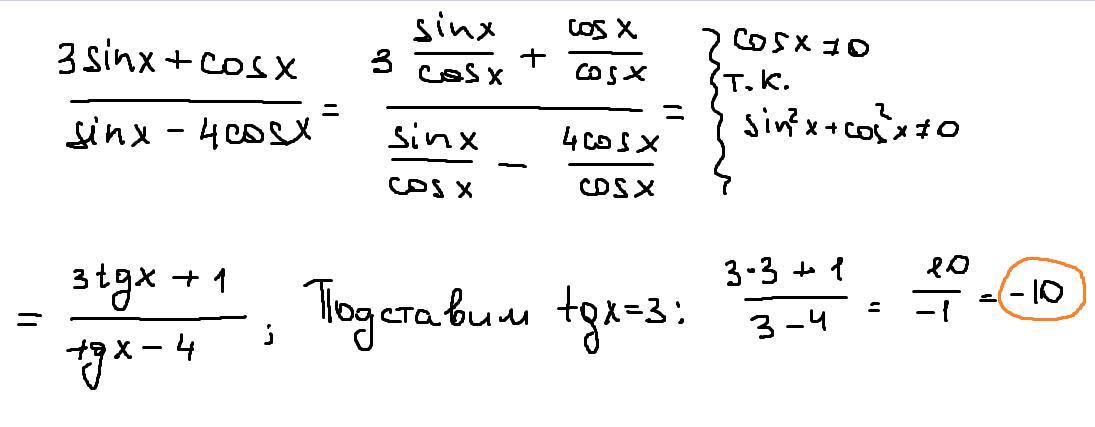 3sinx+cosx / sinx - 4cosx = 3 sinx/cosx + cosx/cosx / sinx/cosx - 4cosx/cosx = } cosx≠0
т.к.
sin²x+cos²x≠0
= 3tgx + 1 / tgx - 4 ; Подставим tgx=3: 3·3 + 1 / 3-4 = 10/-1 = -10